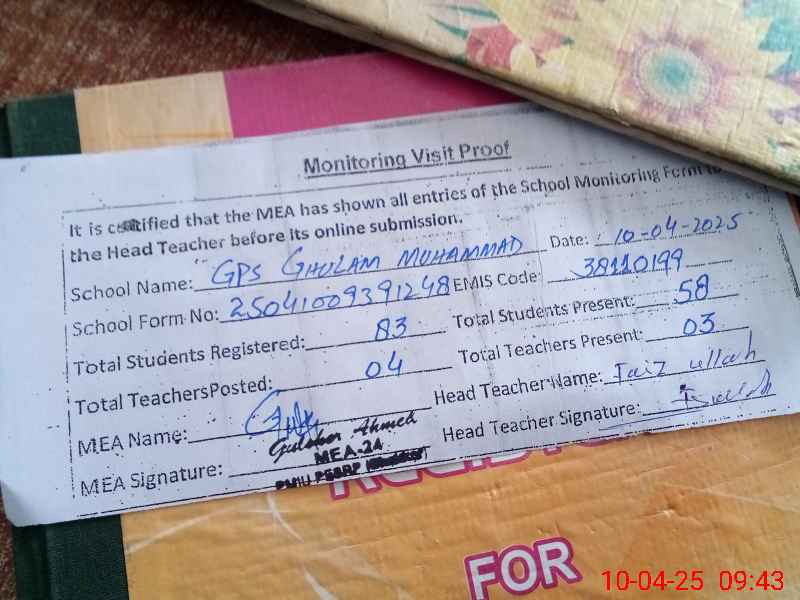 Monitoring Visit Proof
It is certified that the MEA has shown all entries of the School Monitoring Form to
the Head Teacher before its online submission.
School Name: GPS GHULAM MUHAMMAD Date: 10-04-2025
School Form No: 25041009391248 EMIS Code: 38110199
Total Students Registered: 83 Total Students Present: 58
Total TeachersPosted: 04 Total Teachers Present: 03
MEA Name: Head Teacher Name: Faiz ullah
MEA Signature: Gulsher Ahmed Head Teacher Signature:
MEA-24
PMIU PESRP
FOR
10-04-25 09:43